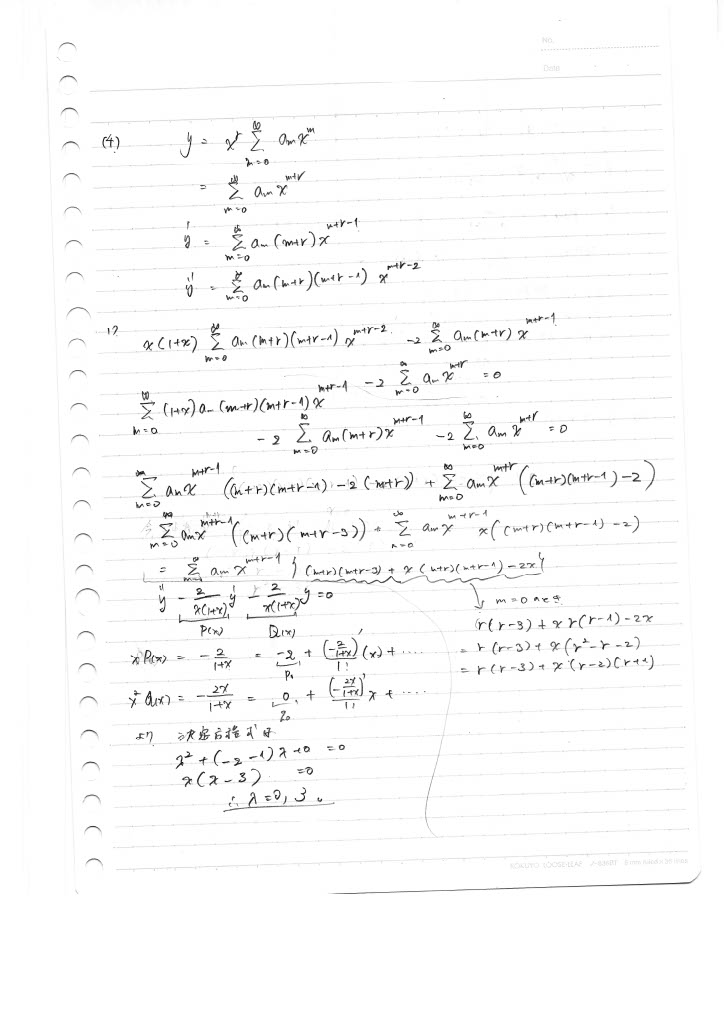 No.
Date
(4) y = x^r Σ_{m=0}^∞ a_m x^m
= Σ_{m=0}^∞ a_m x^{m+r}
y' = Σ_{m=0}^∞ a_m (m+r) x^{m+r-1}
y'' = Σ_{m=0}^∞ a_m (m+r)(m+r-1) x^{m+r-2}
x(1+x) Σ_{m=0}^∞ a_m (m+r)(m+r-1) x^{m+r-2} -2 Σ_{m=0}^∞ a_m (m+r) x^{m+r-1}
-2 Σ_{m=0}^∞ a_m x^{m+r} = 0
Σ_{m=0}^∞ (1+x) a_m (m+r)(m+r-1) x^{m+r-1}
-2 Σ_{m=0}^∞ a_m (m+r) x^{m+r-1} -2 Σ_{m=0}^∞ a_m x^{m+r} = 0
Σ_{m=0}^∞ a_m x^{m+r-1} ((m+r)(m+r-1) -2(m+r)) + Σ_{m=0}^∞ a_m x^{m+r} ((m+r)(m+r-1) -2)
Σ_{m=0}^∞ a_m x^{m+r-1} ((m+r)(m+r-3)) + Σ_{m=0}^∞ a_m x^{m+r-1} x((m+r)(m+r-1) -2)
= Σ a_m x^{m+r-1} { (m+r)(m+r-3) + x(m+r)(m+r-1) -2x }
y'' - 2/x(1+x) y' - 2/x(1+x) y = 0
P(x) Q(x)
m=0 のとき
r(r-3) + x r(r-1) -2x
= r(r-3) + x(r²-r-2)
= r(r-3) + x(r-2)(r+1)
xP(x) = -2/1+x = -2 + (-2/1+x)'/1! (x) + ....
P₀
x²Q(x) = -2x/1+x = 0 + (-2x/1+x)'/1! x + ....
より 決定方程式は
λ² + (-2-1)λ + 0 = 0
λ(λ-3) = 0
∴ λ = 0, 3.
KOKUYO LOOSE-LEAF